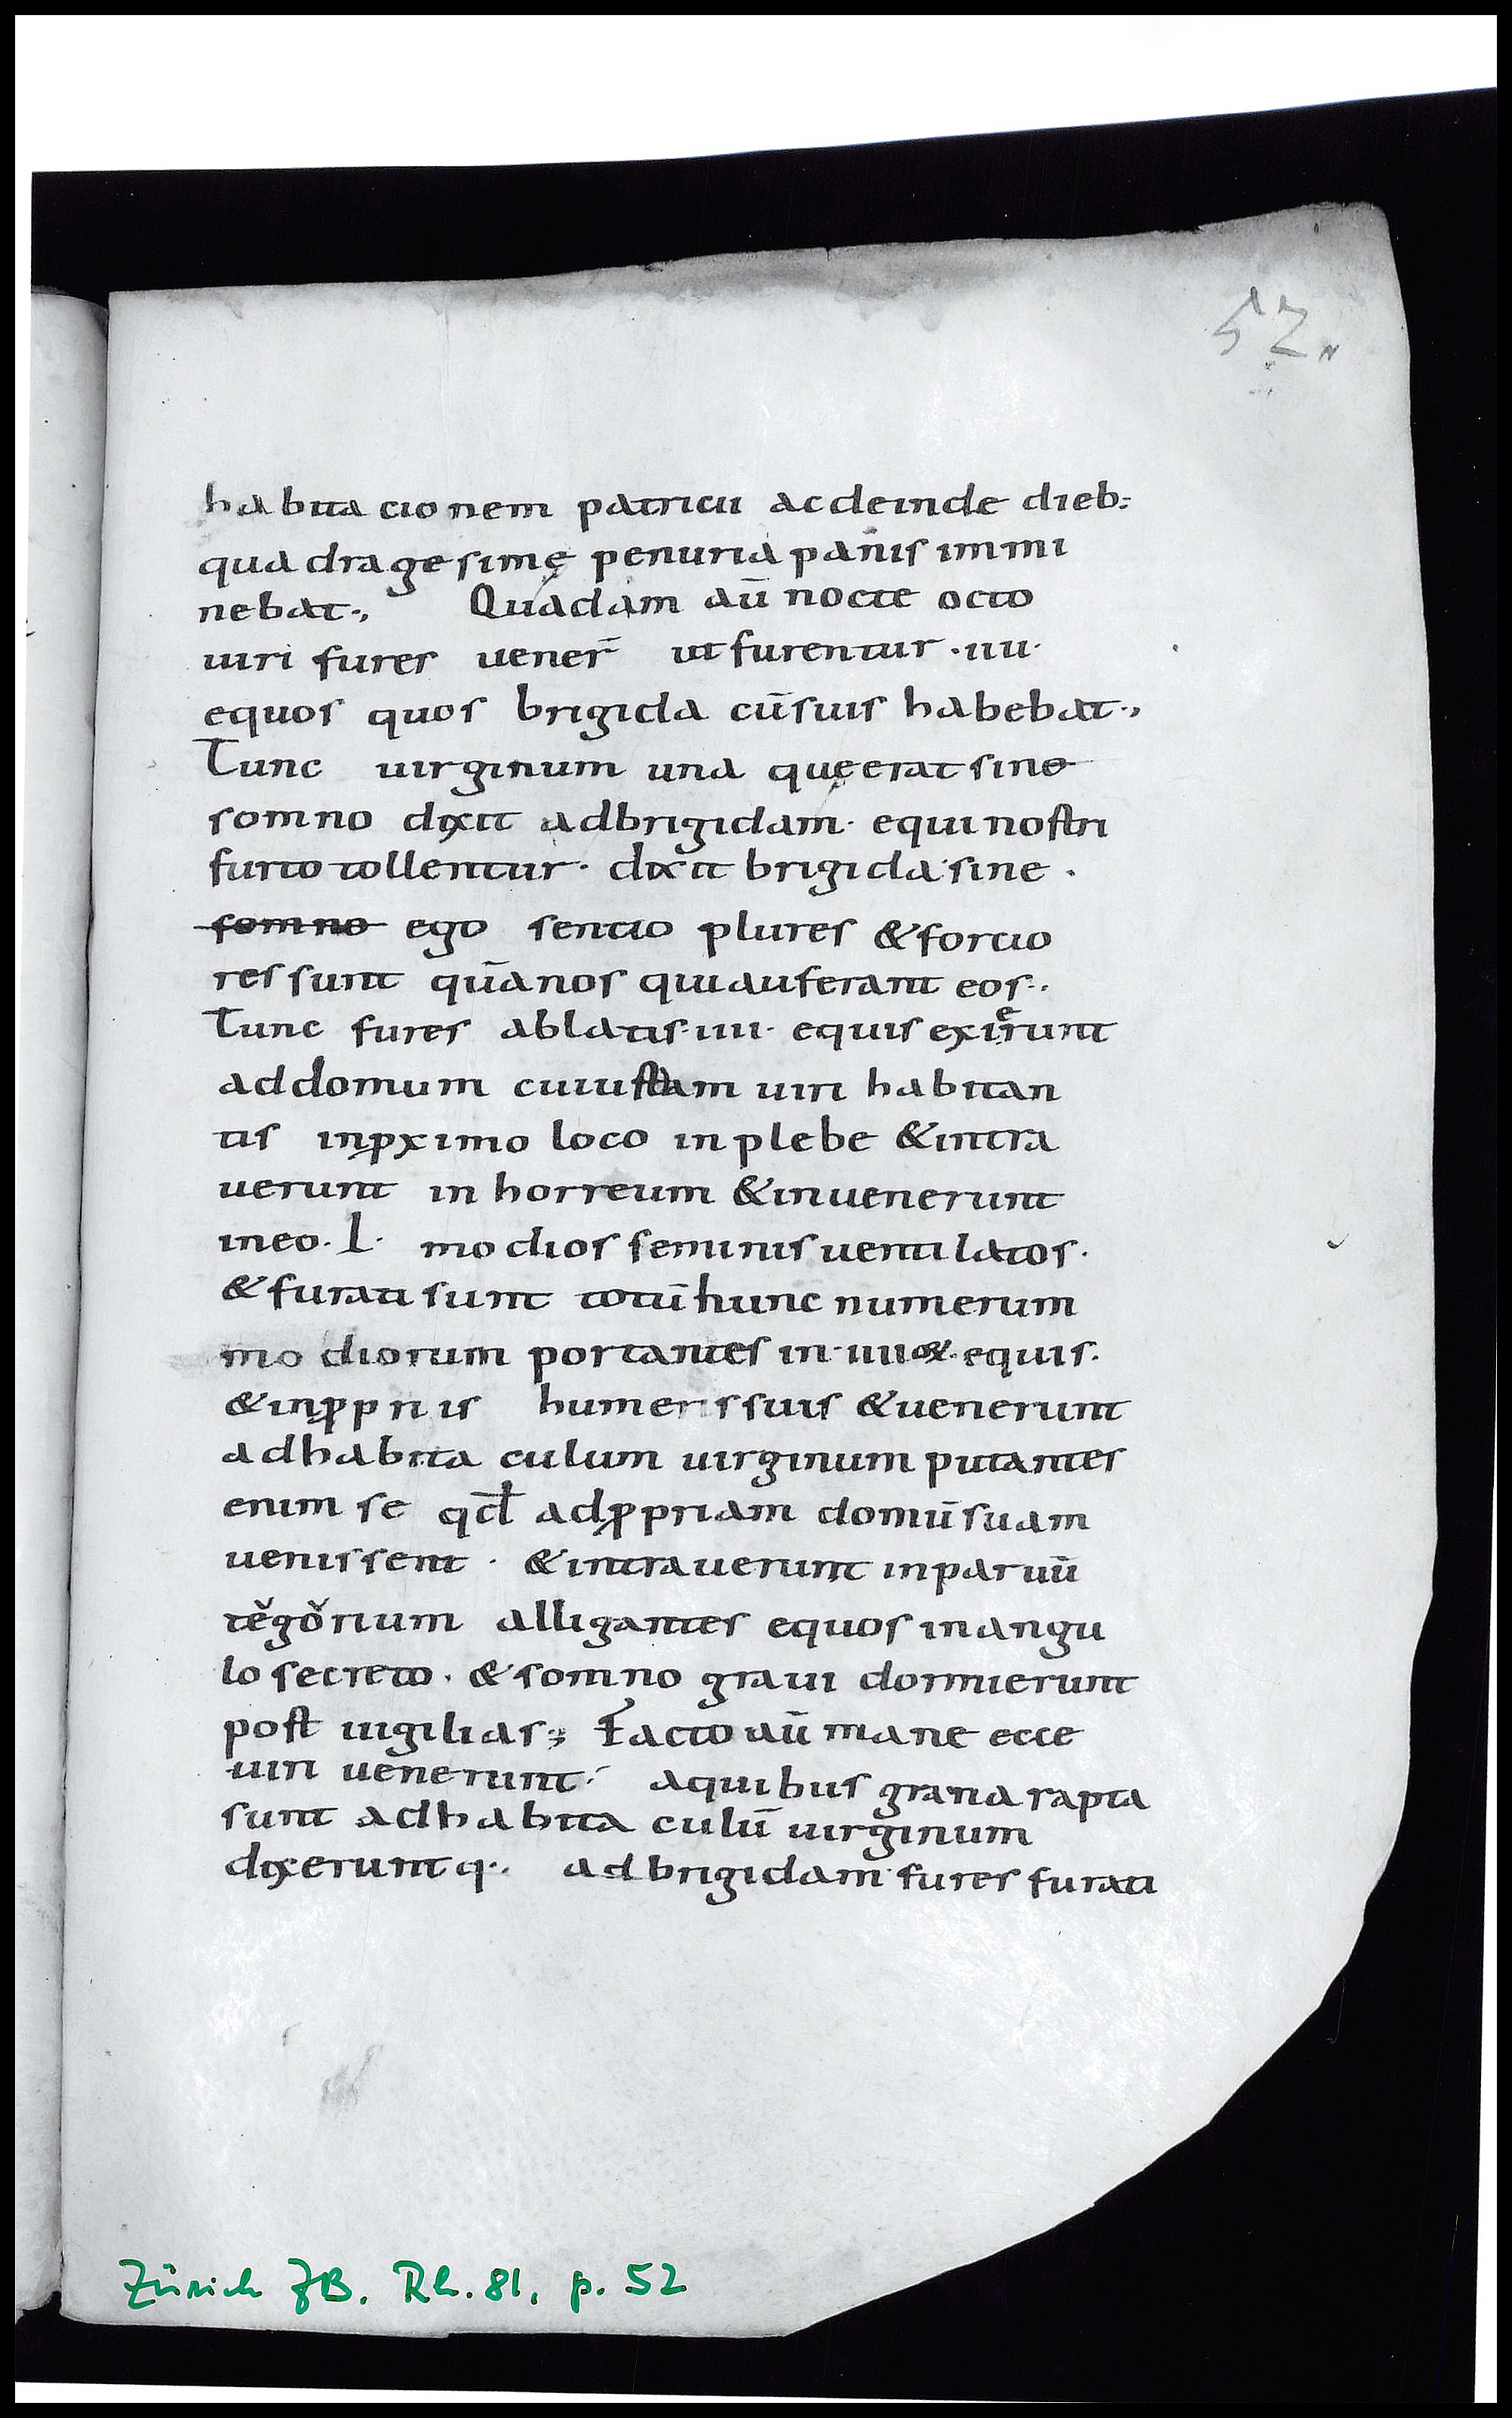 52.
habitacionem patricii ac deinde dieb:
quadragesimę penuria panis immi
nebat., Quadam aū nocte octo
uiri fures uener̄ ut furentur .iiii.
equos quos brigida cū suis habebat.,
Tunc uirginum una quę erat sine
somno dixit ad brigidam. equi nostri
furto tollentur. dixit brigida. sine.
somno ego sentio plures & forcio
res sunt quā nos qui auferant eos..
Tunc fures ablatis. iiii. equis exierunt
ad domum cuiusdam uiri habitan
tis in ꝓximo loco in plebe & intra
uerunt in horreum & inuenerunt
in eo. l. modios seminis uentilatos.
& furati sunt totū hunc numerum
modiorum portantes in. iiii or. equis.
& in ꝓpriis humeris suis & uenerunt
ad habitaculum uirginum putantes
enim se qd̄ ad ꝓpriam domū suam
uenissent. & intrauerunt in paruū
tegorium alligantes equos in angu
lo secreto. & somno graui dormierunt
post uigilias; Facto aū mane ecce
uiri uenerunt. a quibus grana rapta
sunt ad habitaculū uirginum
dixerunt q.. ad brigidam. fures furati
Zürich ZB. Rh. 81, p. 52